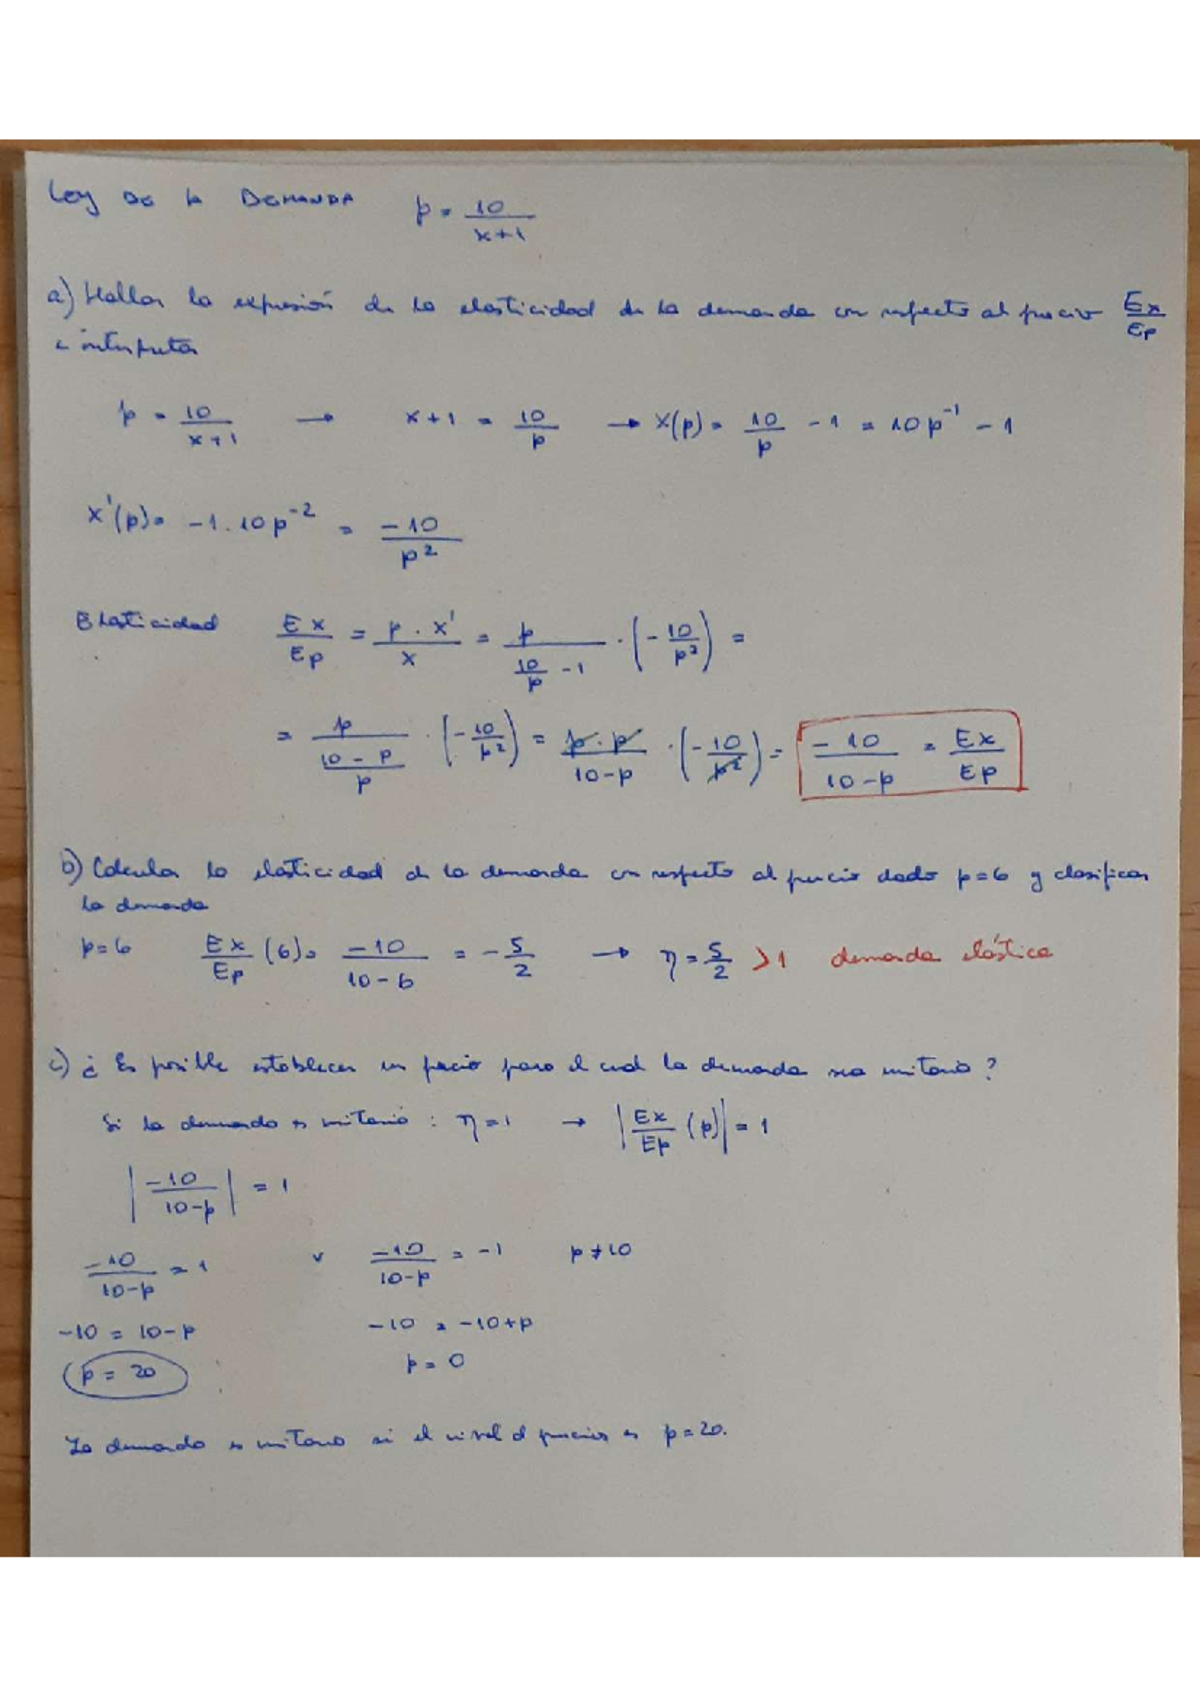 Ley de la DEMANDA p = 10/(x+1)
a) Hallar la expresión de la elasticidad de la demanda con respecto al precio Ex/Ep
e interpretar
p = 10/(x+1) → x + 1 = 10/p → x(p) = 10/p - 1 = 10p^-1 - 1
x'(p) = -1 . 10 p^-2 = -10/p^2
Elasticidad Ex/Ep = p . x'/x = p/(10/p - 1) · (-10/p^2) =
= p/((10 - p)/p) · (-10/p^2) = p · p/(10-p) · (-10/p^2) = -10/(10-p) = Ex/Ep
b) Calcular la elasticidad de la demanda con respecto al precio dado p=6 y clasificar
la demanda
p=6 Ex/Ep (6) = -10/(10-6) = -5/2 → η = 5/2 > 1 demanda elástica
c) ¿Es posible establecer un precio para el cual la demanda sea unitaria?
Si la demanda es unitaria : η=1 → |Ex/Ep (p)| = 1
|-10/(10-p)| = 1
-10/(10-p) = 1 v -10/(10-p) = -1 p ≠ 10
-10 = 10-p -10 = -10+p
p = 20 p = 0
La demanda es unitaria si el nivel d precios es p=20.